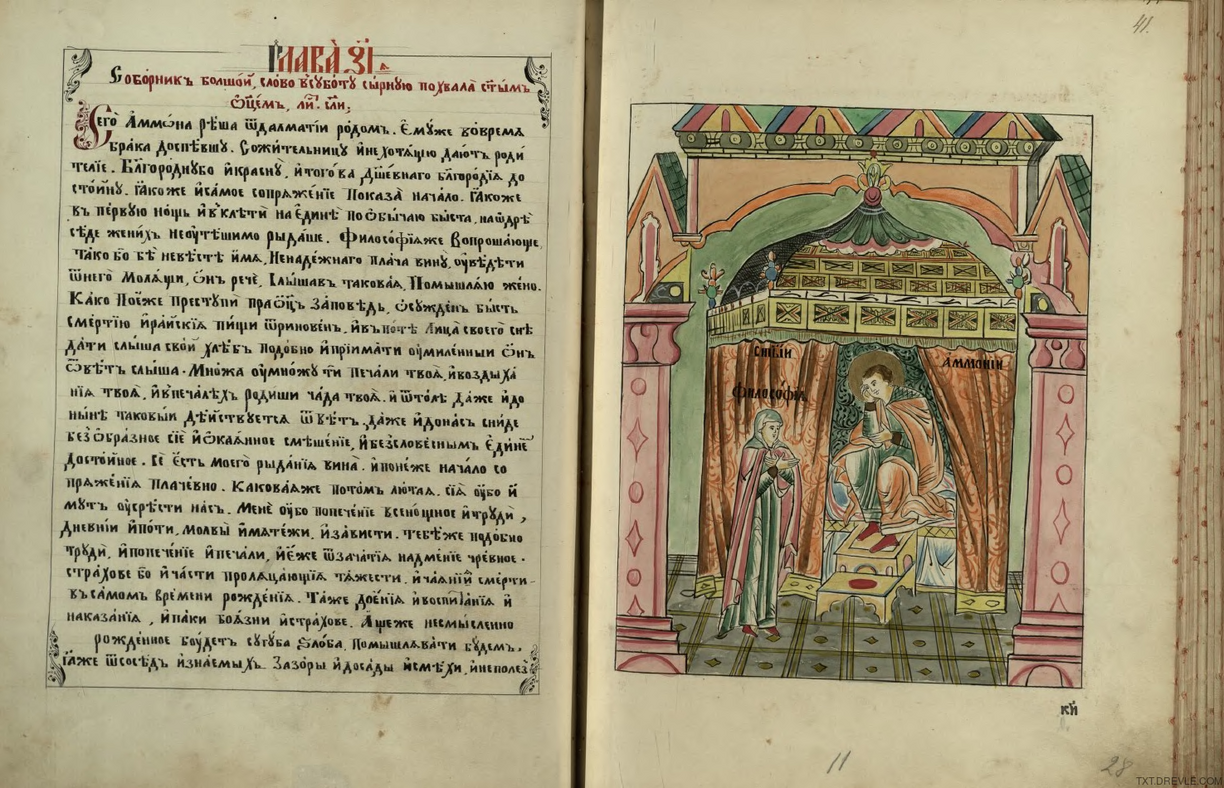 Глава̀ з҃і.
Собо́рникъ большо́й, сло́во въ субо́ту сы́рную похвала̀ ст҃ы́мъ
ѻ҆тце́мъ, ли́.
Сего̀ Аммѡ́на рѣ́ша ѿдалматі́и ро́домъ. є҆му́же во́время
бра́ка доспѣ́вшу. Сожи́тельницу и҆нехотѧ́щю даю́тъ роди
теліе. Бл҃горо́дну ѹ҆бо и҆красну, и҆того̀ дш҃е́внаго бл҃горо́діѧ до
сто́йну. ꙗ҆́коже и҆са́мое сопрѧже́ніе показа̀ нача́ло. ꙗ҆́коже
въ пе́рвую но́щь и҆вклѣ́ти наединѣ̀ поѡбы́чаю бы́ста, наѻдрѣ̀
сѣ́де жени́хъ неоутѣ́шимо рыда́ше. Философі́ѧже вопроша́юще,
та́ко бо бѣ̀ невѣ́стѣ и҆́мѧ, Ненаде́жнаго пла́ча вину̀, оувѣ́дѣти
ѿнего̀ молѧ́щи, ѻ҆́нъ речѐ, слы́шавъ такова́ѧ, Помышлѧ́ю же́но.
Ка́ко пое́же преступѝ пра́ѻц҃ъ за́повѣдь, ѡ҆сужде́нъ бы́сть
сме́ртію и҆ра́йскіѧ пи́щи ѿринове́нъ, и҆въ по́тѣ лица̀ своего̀ снѣ
да́ти слы́ша сво́й хлѣ́бъ подо́бно и҆пріима́ти оумиле́нный ѻ҆́нъ
ѿвѣ́тъ слы́ша. Мно́жа оумно́жу ти печа́ли твоѧ̀, и҆воздыха́
ніѧ твоѧ̀, и҆впеча́лѣхъ роди́ши ча́да твоѧ̀. и҆ѿто́лѣ да́же и҆до
ны́нѣ таковы́и дѣ́йствуетсѧ ѿвѣ́тъ. да́же и҆дона́съ сни́де
безѻбра́зное сіѐ и҆ѻкаѧ́нное смѣше́ніе, и҆безслове́снымъ є҆ди́нѣ
досто́йное. сѐ є҆́сть моего̀ рыда́ніѧ вина̀. и҆поне́же нача́ло со
прѧже́ніѧ плаче́вно. Какова́ѧже пото́мъ лю́таѧ. сіѧ̀ оубо и҆́
мутъ оусрѣ́сти на́съ. Менѐ оубо попече́ніе всено́щное и҆трудѝ,
дне́вніи и҆по́ти, молвы̀ и҆мѧте́жи, и҆за́висти. Тебѣ́же подо́бно
трудѝ, и҆попече́ніе и҆печа́ли, и҆є҆́же ѿзача́тіѧ надме́ніе чре́вное.
стра́хове бо и҆ча́сти пролѧца́ющіѧ тѧ́жести. и҆чаѧ́ній сме́рти
въса́момъ вре́мени рожде́ніѧ. Та́же дое́ніѧ и҆воспита́ніѧ и҆
наказа́ніѧ, и҆па́ки боѧ́зни и҆стра́хове. А҆́щеже несмы́сленно
рожде́нное бу́детъ сугу́ба ѕло́ба. помышлѧва́ти бу́демъ.
ꙗ҆́же ѿсосѣ́дъ и҆зна́емыхъ. зазо́ры и҆доса́ды и҆смѣ́хи, и҆неполез
41.
Ст҃ы́й
Философі́ѧ
Аммоній
к҃и
11
28
TXT.DREVLE.COM